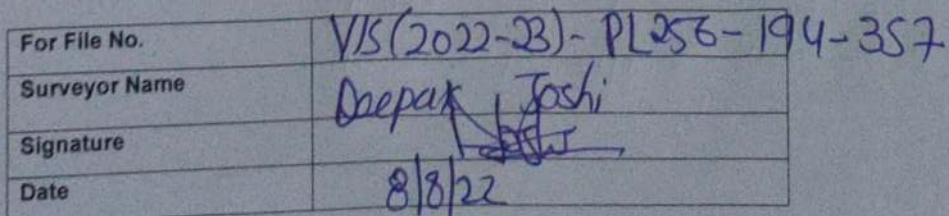 For File No. VIS(2022-23)- PL256-194-357
Surveyor Name Deepak Joshi
Signature
Date 8/8/22